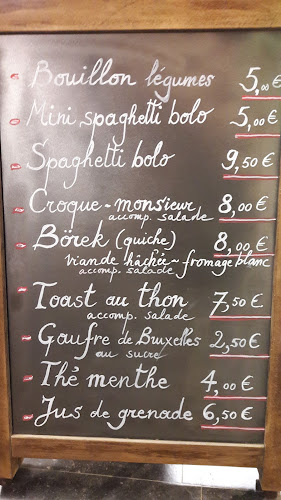 Bouillon légumes 5,00 €
Mini spaghetti bolo 5,00 €
Spaghetti bolo 9,50 €
Croque-monsieur 8,00 €
accomp. salade
Börek (quiche) 8,00 €
viande hâchée - fromage blanc
accomp. salade
Toast au thon 7,50 €
accomp. salade
Gaufre de Bruxelles 2,50 €
au sucre
Thé menthe 4,00 €
Jus de grenade 6,50 €